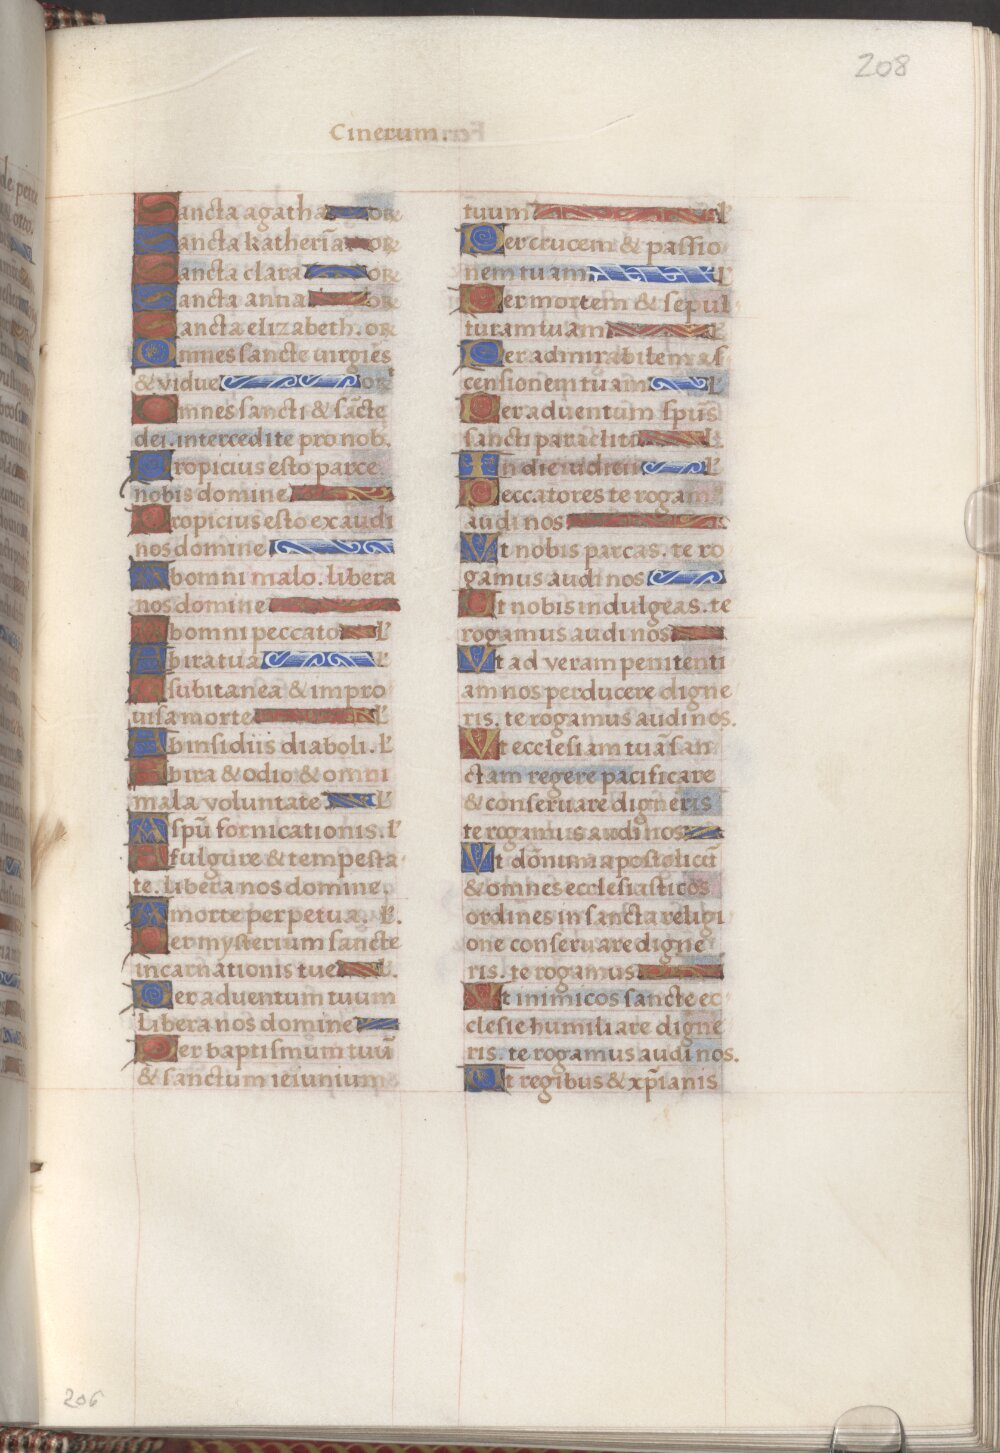 208
Cinerum.
Sancta agatha or
Sancta katherĩa or
Sancta clara or
Sancta anna or
Sancta elizabeth. or
Omnes sancte virgĩes
& vidue or
Omnes sancti & sãcte
dei. intercedite pro nob.
Propicius esto parce
nobis domine
Propicius esto exaudi
nos domine
Ab omni malo. libera
nos domine
Ab omni peccato L'
Ab ira tua L'
A subitanea & impro
uisa morte L'
Ab insidiis diaboli. L'
Ab ira & odio & omni
mala voluntate L'
A spũ fornicationis. L'
A fulgure & tempesta
te. libera nos domine
A morte perpetua. L'.
Per mysterium sancte
incarnationis tue L'.
Per aduentum tuum
Libera nos domine
Per baptismum tuũ
& sanctum ieiunium
tuum L'
Per crucem & passio
nem tuam L'
Per mortem & sepul
turam tuam L'
Per admirabilem as
censionem tuam L'
Per aduentum spũs
sancti paracliti L'
In die iudicii L'
Peccatores te rogam'
audi nos
Vt nobis parcas. te ro
gamus audi nos
Vt nobis indulgeas. te
rogamus audi nos
Vt ad veram penitenti
am nos perducere digne
ris. te rogamus audi nos.
Vt ecclesiam tuã san
ctam regere pacificare
& conseruare digneris
te rogamus audi nos
Vt dõnum apostolicũ
& omnes ecclesiasticos
ordines in sancta religi
one conseruare digne
ris. te rogamus
Vt inimicos sancte ec
clesie humiliare digne
ris. te rogamus audi nos.
Vt regibus & xp̃ianis
206